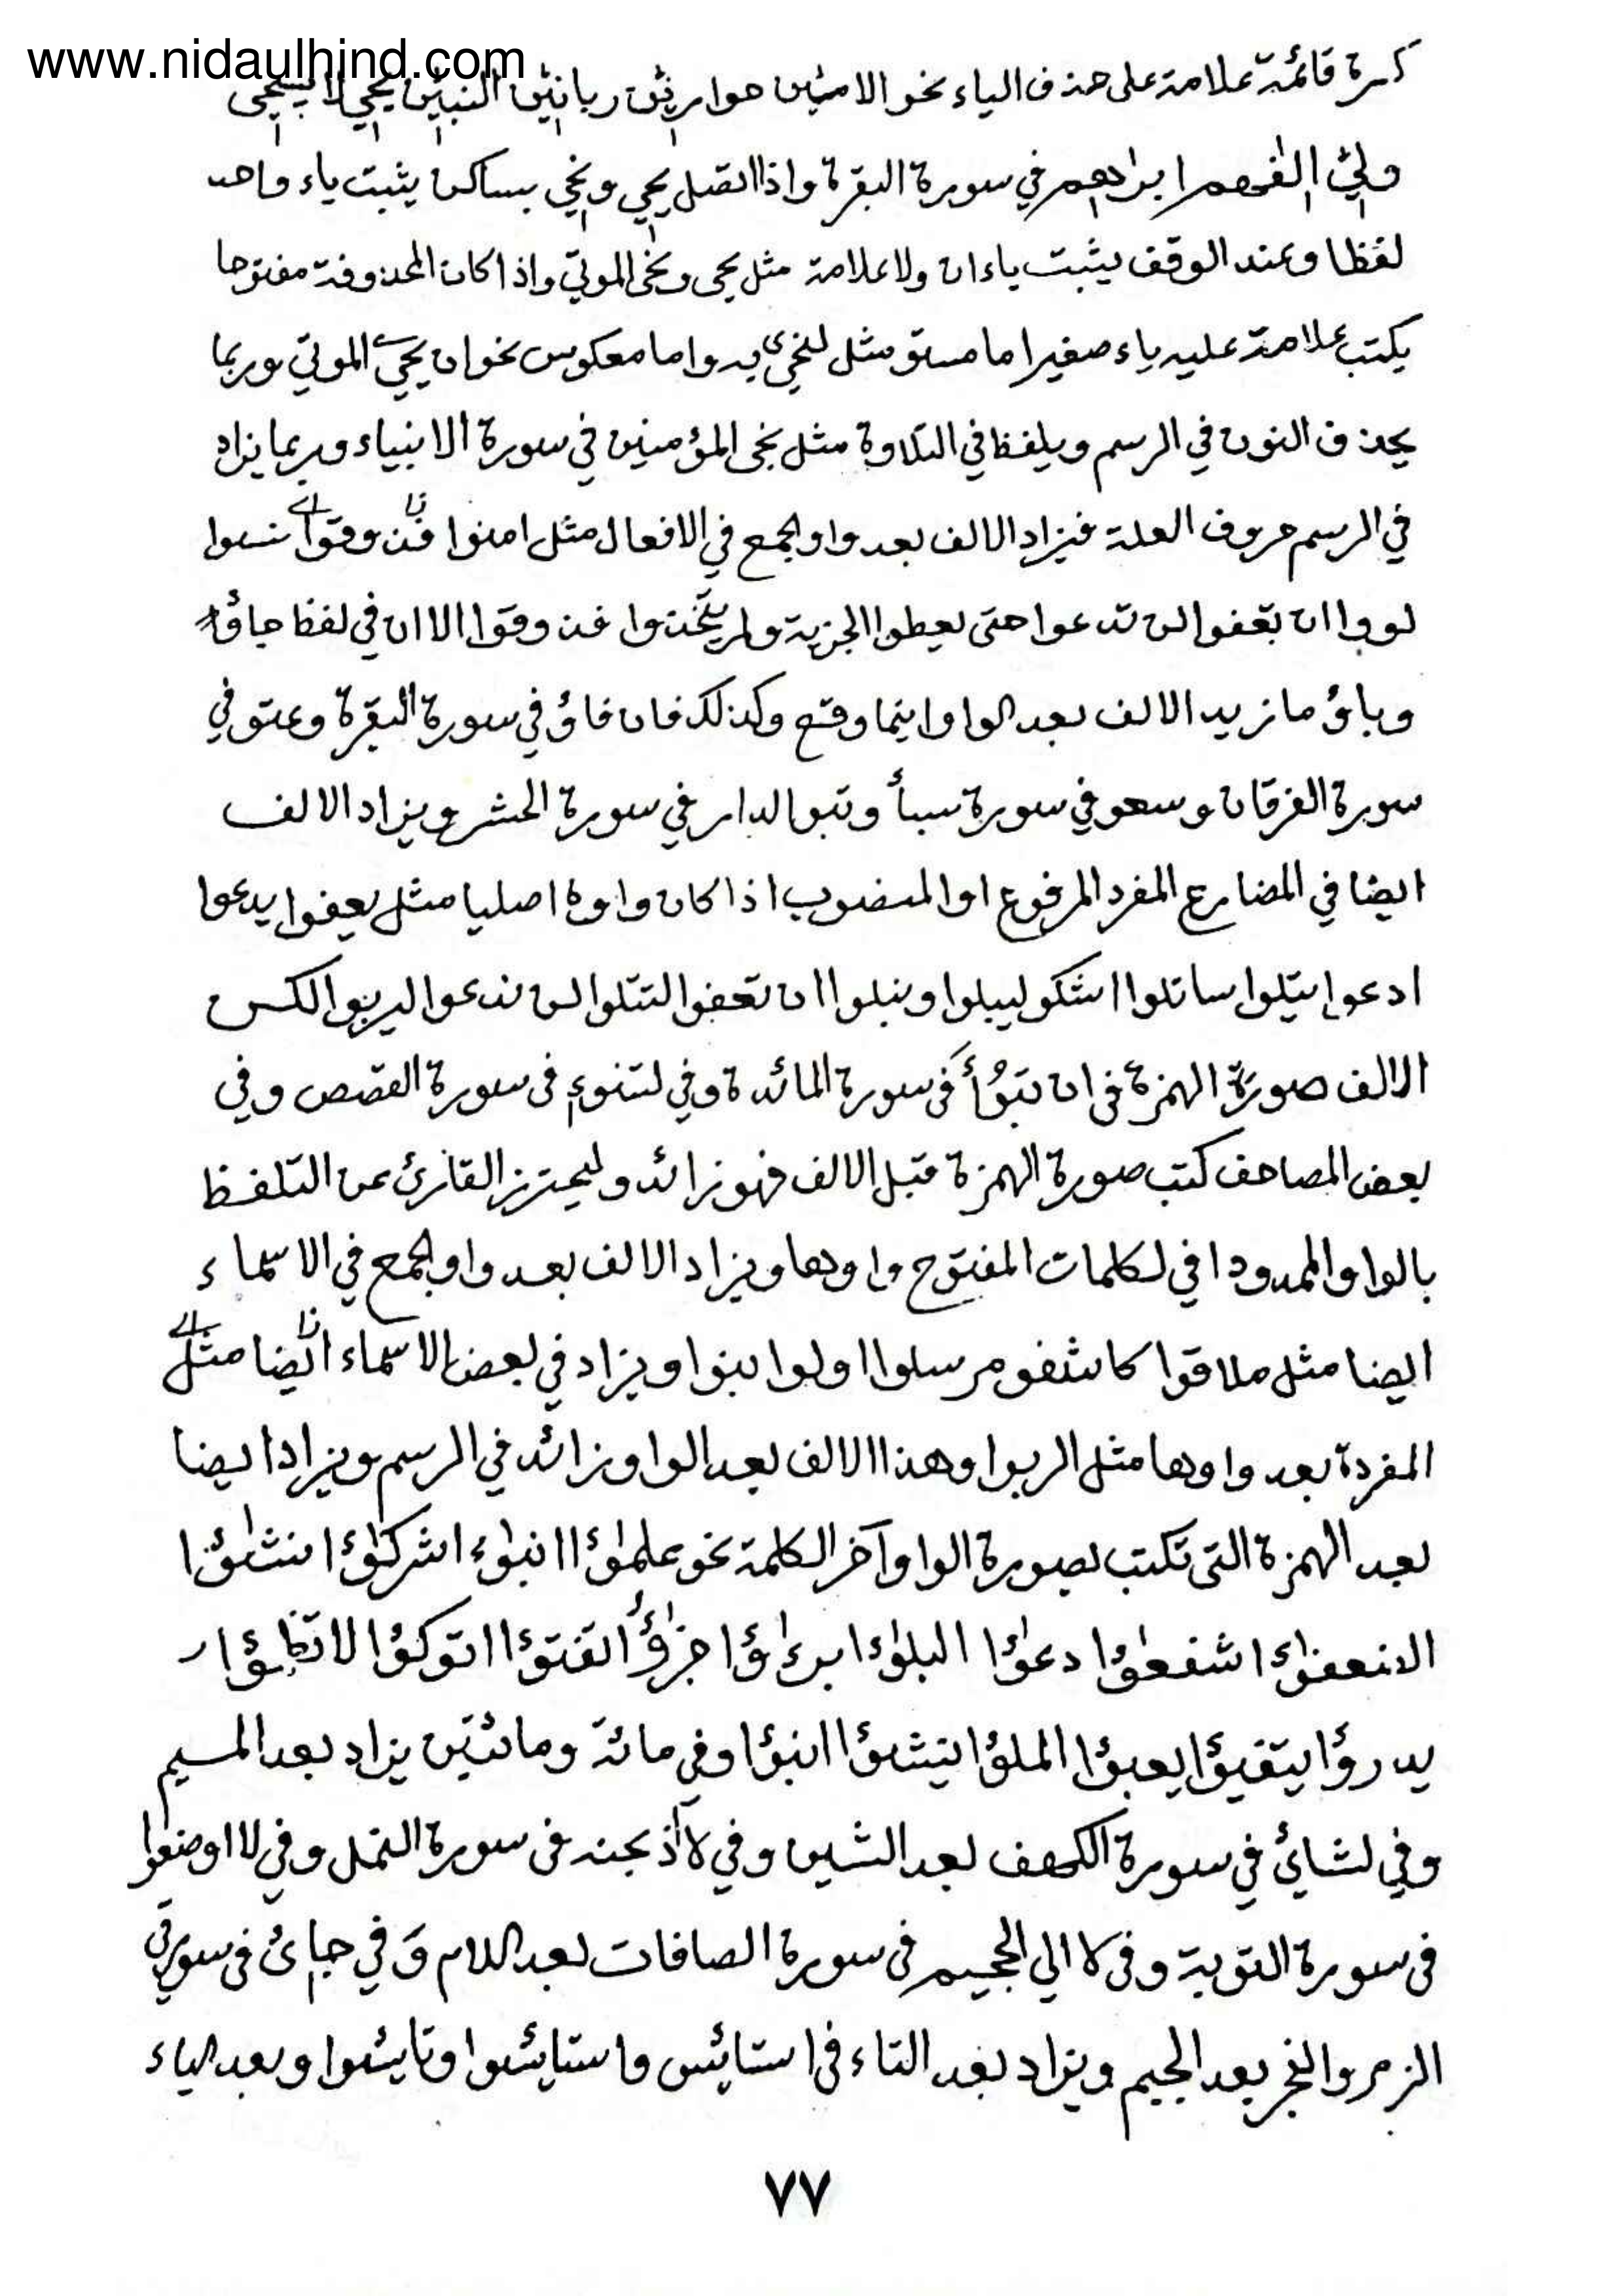 www.nidaulhind.com
كسرة قائمة علامة على حذف الياء نحو الاميٖن حواريٖن ربانيٖن النبيٖن يحيٖ لا يستحيٖ
وليٖ الفهم ابراهٖم في سورة البقرة واذا اتصل يحيٖ ونحيٖ بساكن يثبت ياء واحد
لفظا وعند الوقف يثبت ياءان ولا علامة مثل يحى ونحى الموتى واذا كان المحذوفة مفتوحا
يكتب علامة عليه ياء صغيرا ما مستو مثل لنحيۧ به واما معكوس نحو ان يحيے الموتى وربما
يحذف النون في الرسم ويلفظ في التلاوة مثل نجى المؤمنين في سورة الانبياء وربما يزاد
في الرسم حروف العلة فيزاد الالف بعد واو الجمع في الافعال مثل امنوا نسوا
لووا ان تعفوا لن تدعوا حتى يعطوا الجزية ولم يتخذوا فذوقوا الا ان في لفظ جاؤ
وباؤ ما زيد الالف بعد الواو اينما وقع وكذلك فان فاؤ في سورة البقرة وعتو في
سورة الفرقان وسعو في سورة سبأ وتبو الدار في سورة الحشر ويزاد الالف
ايضا في المضارع المفرد المرفوع او المنصوب اذا كان واوه اصليا مثل يعفوا يدعوا
ادعوا يتلوا ساتلوا اشكو ليبلوا ونبلوا ان تعفوا لتتلوا لن ندعوا ليربوا لكن
الالف صورة الهمزة في ان تبوأ في سورة المائدة وفي لتنوء في سورة القصص وفي
بعض المصاحف كتب صورة الهمزة قبل الالف فهو زائد وليحترز القارئ عن التلفظ
بالواو الممدودا في لكلمات المفتوح واوها ويزاد الالف بعد واو الجمع في الاسماء
ايضا مثل ملاقوا كاشفو مرسلوا اولوا بنوا ويزاد في بعض الاسماء ايضا مثل
المفردة بعد واوها مثل الربوا وهذا الالف بعد الواو زائد في الرسم ويزاد ايضا
بعد الهمزة التى تكتب بصورة الواو آخر الكلمة نحو علمٰؤا انبٰؤا شركٰؤا نشٰؤا
الضعفٰؤا شفعٰؤا دعٰؤا البلٰؤا برءٰؤا جزٰؤا تفتؤا اتوكؤا لا تظمؤا
يدرؤا يتفيؤا يعبؤا الملؤا ينشؤا انبؤا وفي مائة ومائتين يزاد بعد الميم
وفي لشائ في سورة الكهف بعد الشين وفي لااذبحنه في سورة النمل وفي لااوضعوا
في سورة التوبة وفي لا الي الجحيم في سورة الصافات بعد اللام وفي جائ في سورتي
الزمر والفجر بعد الجيم ويزاد بعد التاء في استايئس واستايئسوا وتايئسوا وبعد الياء
٧٧